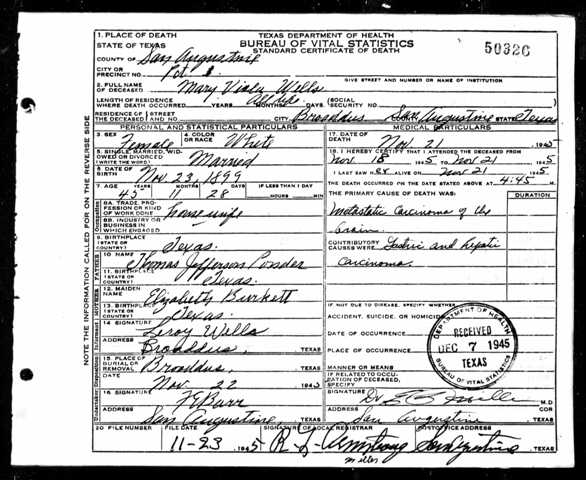 1. PLACE OF DEATH
STATE OF TEXAS
TEXAS DEPARTMENT OF HEALTH
BUREAU OF VITAL STATISTICS
STANDARD CERTIFICATE OF DEATH
50326
COUNTY OF San Augustine
CITY OR PRECINCT NO. Pct 1.
GIVE STREET AND NUMBER OR NAME OF INSTITUTION
2. FULL NAME OF DECEASED Mary Viola Wells
LENGTH OF RESIDENCE WHERE DEATH OCCURRED YEARS MONTHS DAYS All life
SOCIAL SECURITY NO.
RESIDENCE OF THE DECEASED STREET AND NO. CITY Broaddus San Augustine STATE Texas
PERSONAL AND STATISTICAL PARTICULARS
MEDICAL PARTICULARS
3. SEX Female
4. COLOR OR RACE White
17. DATE OF DEATH Nov. 21 1945
5. SINGLE, MARRIED, WIDOWED OR DIVORCED (WRITE THE WORD) Married
18. I HEREBY CERTIFY THAT I ATTENDED THE DECEASED FROM
Nov. 18 1945 TO Nov 21 1945
6. DATE OF BIRTH Nov. 23, 1899
I LAST SAW HER ALIVE ON Nov 21 1945
7. AGE YEARS 45 MONTHS 11 DAYS 28 IF LESS THAN 1 DAY HOURS MIN
THE DEATH OCCURRED ON THE DATE STATED ABOVE AT 4:45 M
8A. TRADE, PROFESSION OR KIND OF WORK DONE house wife
THE PRIMARY CAUSE OF DEATH WAS: DURATION
8B. INDUSTRY OR BUSINESS IN WHICH ENGAGED
Metastatic Carcinoma of the brain
9. BIRTHPLACE (STATE OR COUNTRY) Texas.
CONTRIBUTORY CAUSES WERE: Gastric and hepatic Carcinoma.
10. NAME Thomas Jefferson Ponder
11. BIRTHPLACE (STATE OR COUNTRY) Texas.
12. MAIDEN NAME Elizabeth Burkett
13. BIRTHPLACE (STATE OR COUNTRY) Texas
IF NOT DUE TO DISEASE, SPECIFY WHETHER:
ACCIDENT, SUICIDE, OR HOMICIDE
14. SIGNATURE Leroy Wells
DATE OF OCCURRENCE
ADDRESS Broaddus, TEXAS
PLACE OF OCCURRENCE
DEPARTMENT OF HEALTH
RECEIVED
DEC 7 1945
TEXAS
BUREAU OF VITAL STATISTICS
15. PLACE OF BURIAL OR REMOVAL Broaddus, TEXAS
MANNER OR MEANS
DATE Nov. 22 1945
IF RELATED TO OCCUPATION OF DECEASED, SPECIFY
16. SIGNATURE
M.D.
COR
ADDRESS San Augustine TEXAS
ADDRESS San Augustine TEXAS
20 FILE NUMBER
FILE DATE 11-23 1945
SIGNATURE OF LOCAL REGISTRAR R. L. Armstrong San Augustine, TEXAS
Miller
NOTE INFORMATION CALLED FOR ON THE REVERSE SIDE